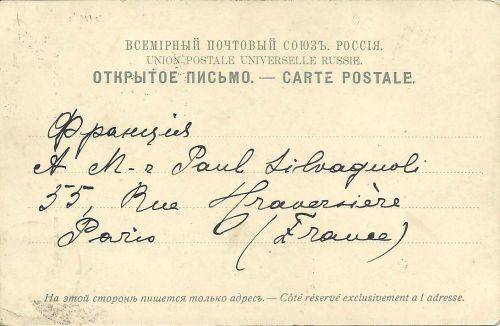 ВСЕМІРНЫЙ ПОЧТОВЫЙ СОЮЗЪ. РОССІЯ.
UNION POSTALE UNIVERSELLE RUSSIE.
ОТКРЫТОЕ ПИСЬМО. — CARTE POSTALE.
Франція
A M-r Paul Silvagnoli
55, Rue Traversière
Paris (France)
На этой сторонѣ пишется только адресъ. — Côté réservé exclusivement a l adresse.